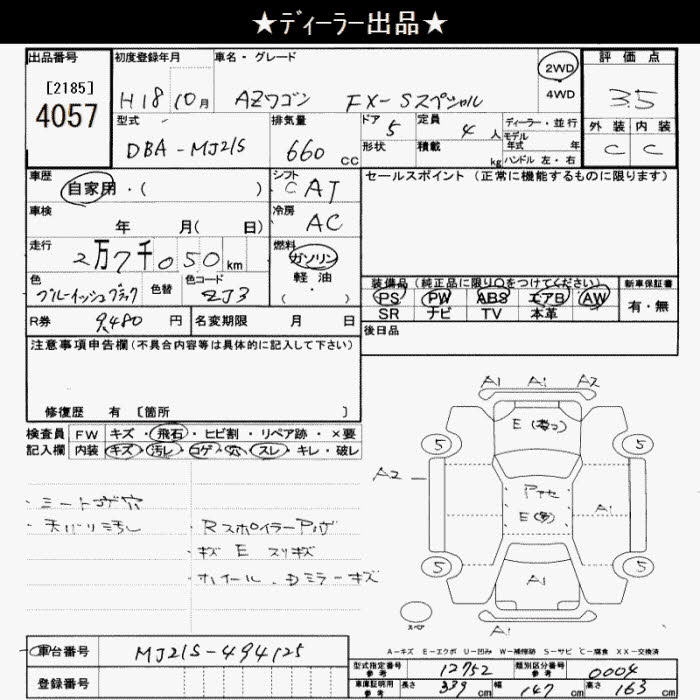 ★ディーラー出品★
出品番号
[2185]
4057
初度登録年月
H18 10月
車名・グレード
AZワゴン FX-Sスペシャル
2WD
4WD
評価点
3.5
外装 内装
C C
型式
DBA-MJ21S
排気量
660 CC
ドア 5
形状
定員 4 人
積載 kg
ディーラー・並行
モデル
年式 年
ハンドル 左・右
車歴
自家用・( )
シフト
CAT
車検
年 月( 日)
冷房
AC
走行
2万7千050 km
燃料
ガソリン
軽油
( )
色
ブルーイッシュブラック
色替
色コード
ZJ3
R券 9,480 円
名変期限 月 日
セールスポイント (正常に機能するものに限ります)
装備品 (純正品に限り○をつけてください)
PS PW ABS エアB AW
SR ナビ TV 本革
新車保証書
有・無
後日品
注意事項申告欄(不具合内容等は具体的に記入して下さい)
修復歴 有 [箇所 ]
検査員
記入欄
FW キズ・飛石・ヒビ割・リペア跡・×要
内装 キズ・汚レ・コゲ・穴・スレ・キレ・破レ
・シートコゲ穴
・天バリ汚レ
・Rスポイラー
・キズ E スリキズ
・ホイール、Dミラーキズ
A1 A1 A2
5 5
A2
A1
A1
5 5
A1
スペア
A-キズ E-エクボ U-凹み W-補修跡 S-サビ C-腐食 XX-交換済
車台番号 MJ21S-494125
登録番号
型式指定番号
参考
12752
類別区分番号
参考
0004
車庫証明用
参考
長さ 339 cm 幅 147 cm 高さ 163 cm